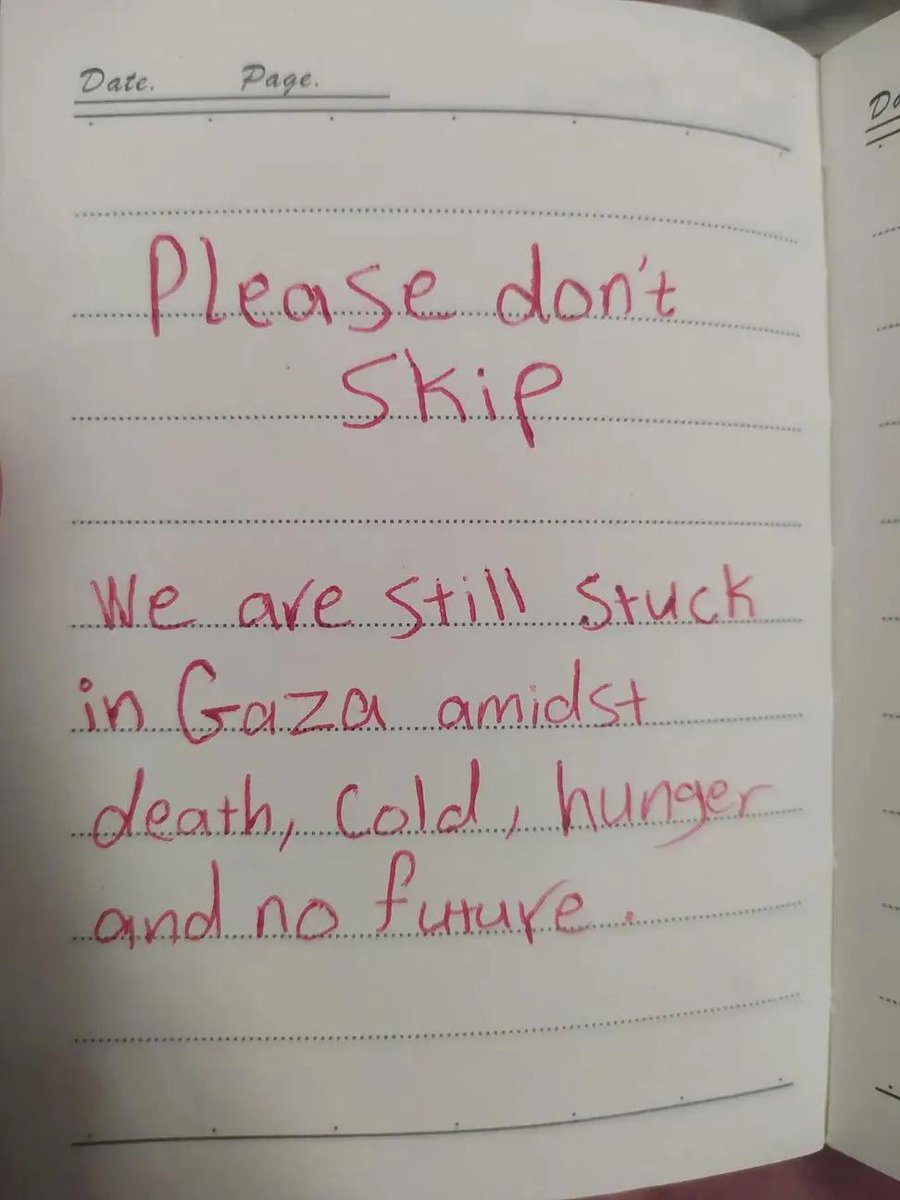 Date. Page.
Please don't
Skip
We are still stuck
in Gaza amidst
death, cold, hunger
and no future.